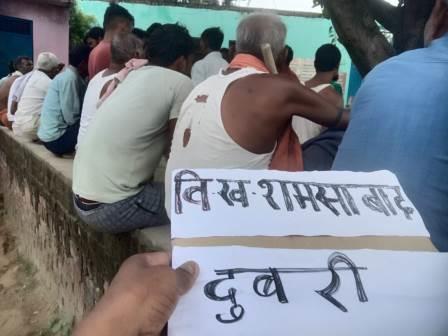 वि.ख.रामसाबाद
दुबरी